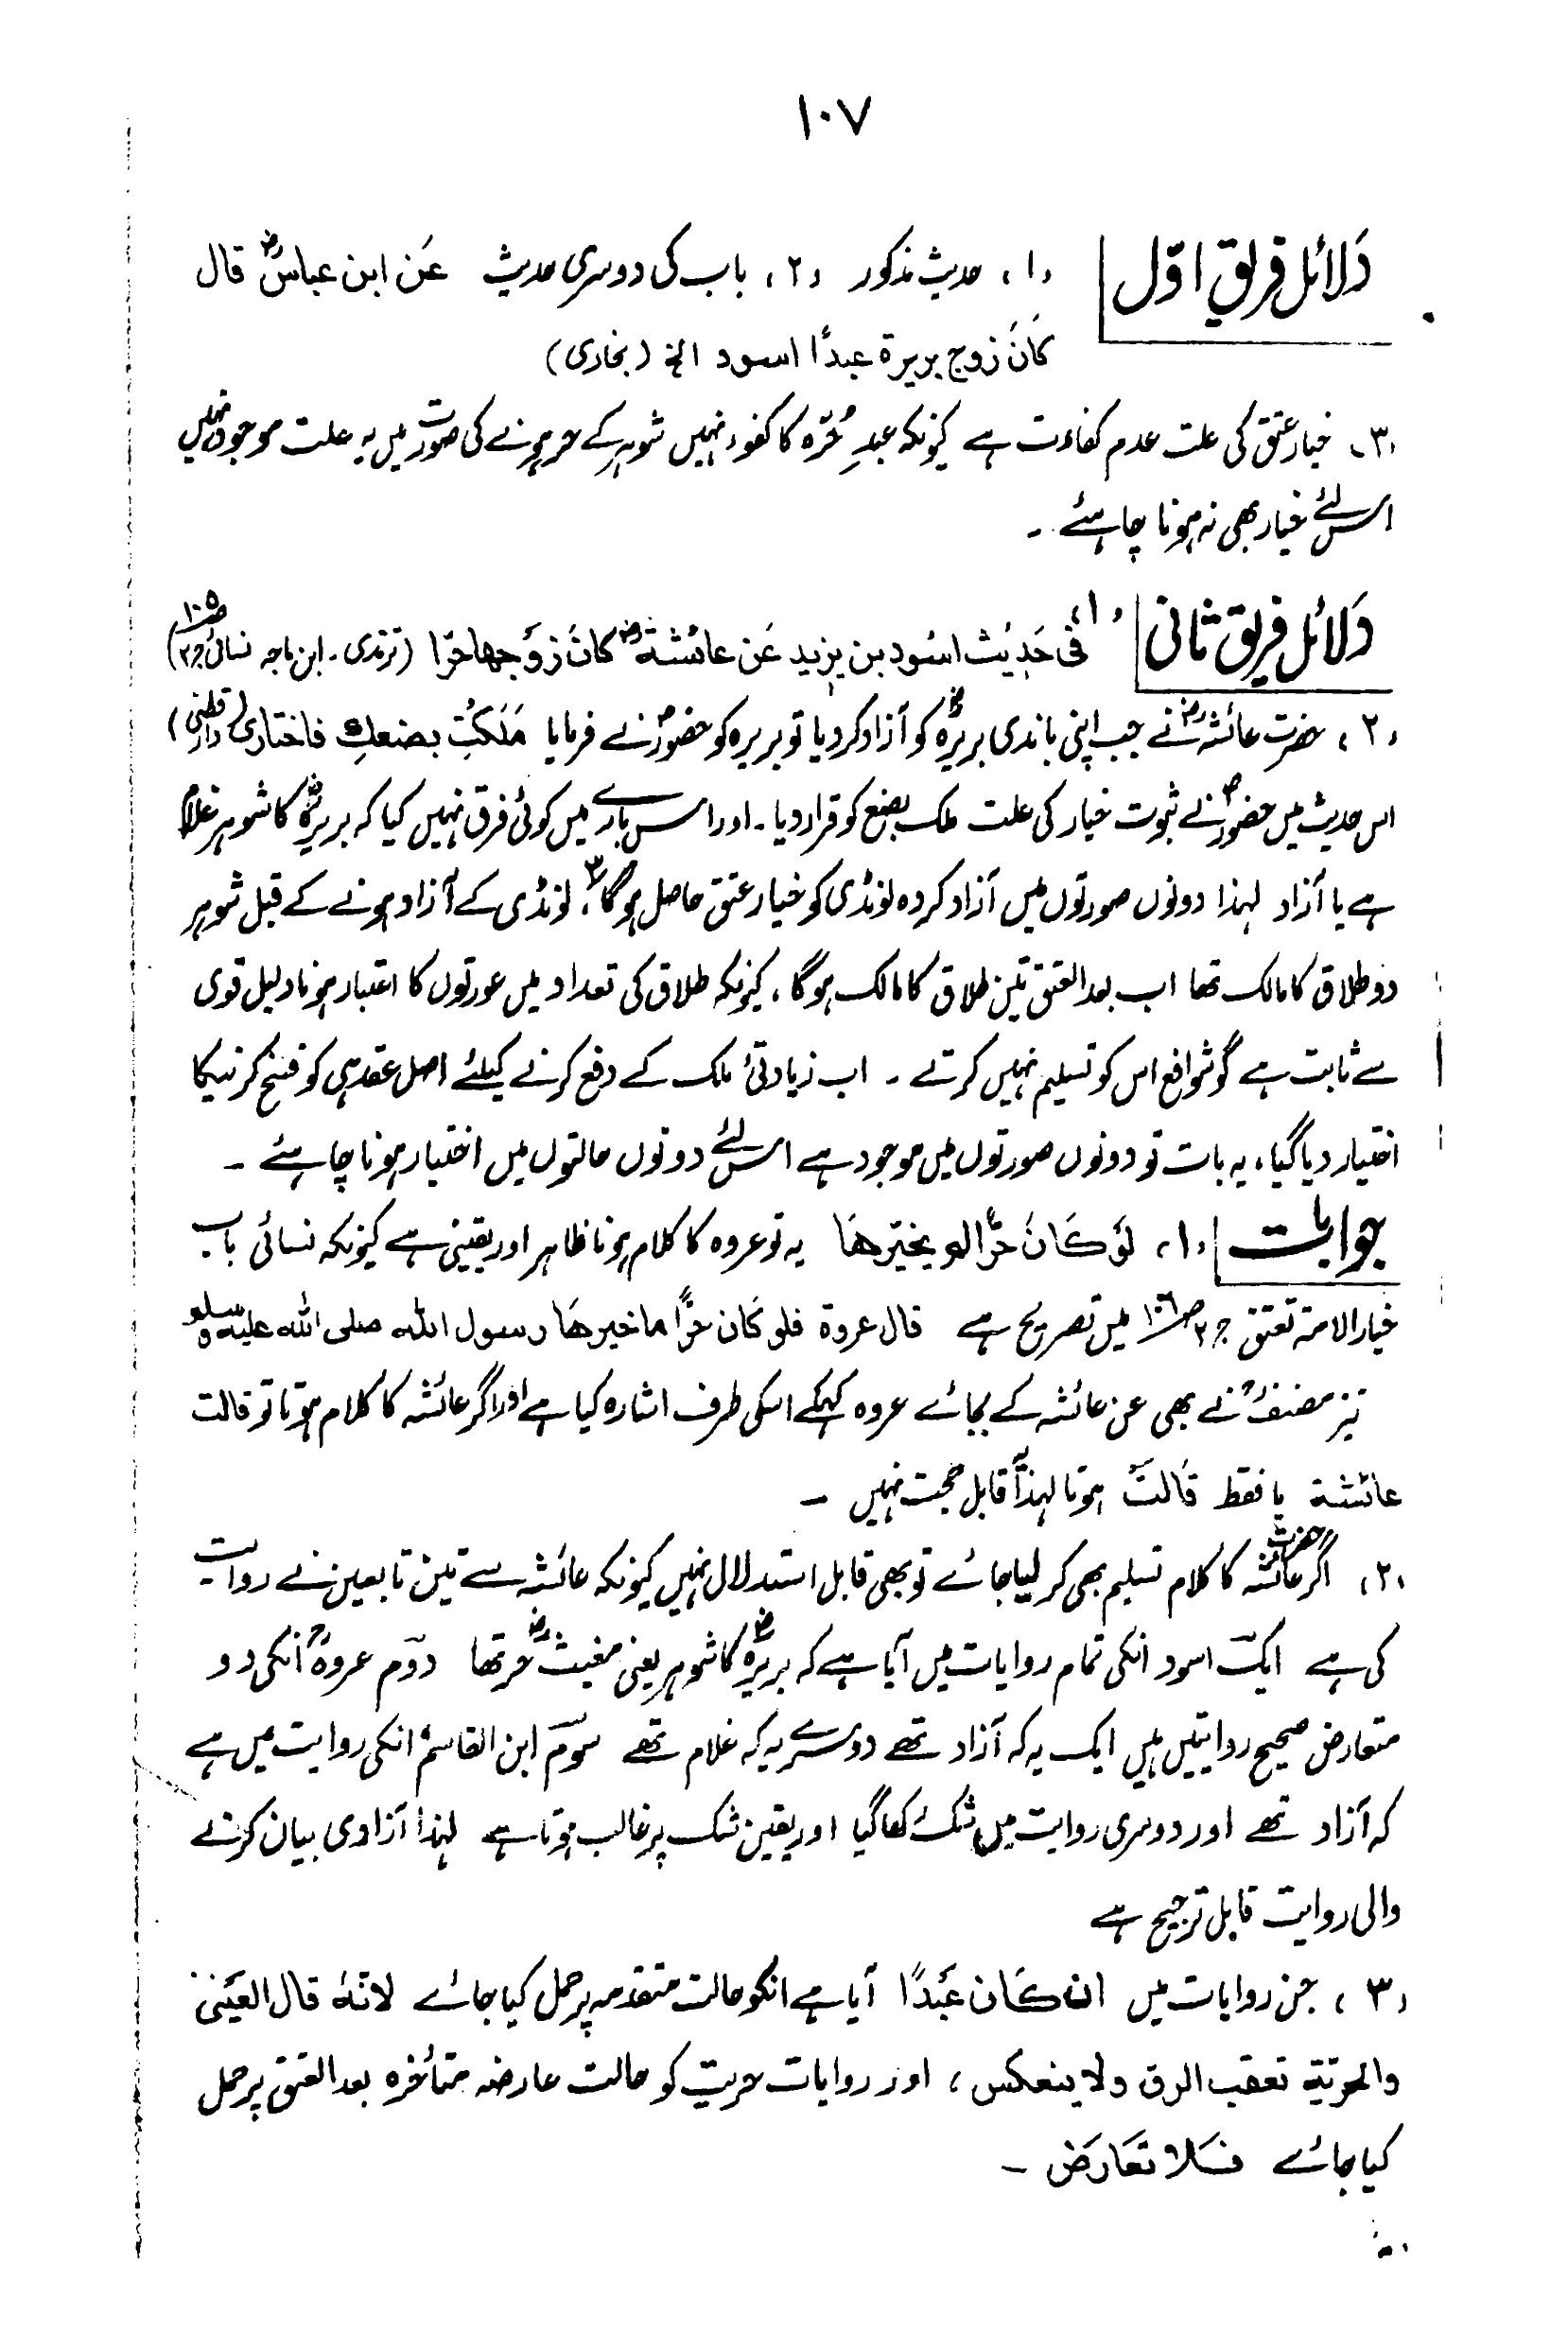 ۱۰۷
دَلائل فریق اوّل (۱) حدیث مذکور (۲) باب کی دوسری حدیث عَن ابن عباسؓ قال
کَانَ زوج بریرة عبدًا اسود الخ (بخاری)
(۳) خیار عتق کی علت عدم کفاءت ہے کیونکہ عبد حُرّہ کا کفوء نہیں شوہر کے حر ہونے کی صورت میں یہ علت موجود نہیں
اس لئے خیار بھی نہ ہونا چاہئے ۔
دَلائل فریق ثانی (۱) فی حَدِیْث اسْود بن یزید عَن عائشة رضؓ کانَ زوْجها حرّا (ترمذی ۔ ابن ماجہ نسائی ج۲ ص۱۰۵)
(۲) حضرت عائشہؓ نے جب اپنی باندی بریرہؓ کو آزاد کر دیا تو بریرہ کو حضورؐ نے فرمایا مَلَکْتِ بضعكِ فاختاری (دار قطنی)
اس حدیث میں حضورؐ نے ثبوت خیار کی علت ملک بضع کو قرار دیا ۔ اور اس بارے میں کوئی فرق نہیں کیا کہ بریرہؓ کا شوہر غلام
ہے یا آزاد لہذا دونوں صورتوں میں آزاد کردہ لونڈی کو خیار عتق حاصل ہوگا (۳) لونڈی کے آزاد ہونے کے قبل شوہر
دو طلاق کا مالک تھا اب بعد العتق تین طلاق کا مالک ہوگا ، کیونکہ طلاق کی تعداد میں عورتوں کا اعتبار ہونا دلیل قوی
سے ثابت ہے گو شوافع اس کو تسلیم نہیں کرتے ۔ اب زیادتیٔ ملک کے دفع کرنے کیلئے اصل عقد ہی کو فسخ کرنیکا
اختیار دیا گیا ، یہ بات تو دونوں صورتوں میں موجود ہے اس لئے دونوں حالتوں میں اختیار ہونا چاہئے ۔
جوابات (۱) لَوْ کَانَ حُرًّا لم یخیّرهَا یہ تو عروہ کا کلام ہونا ظاہر اور یقینی ہے کیونکہ نسائی باب
خیار الامۃ تعتق ج۲ ص۱۰۶ میں تصریح ہے قال عروة فلو کَان حرًّا ما خیرهَا رسول الله صلی الله علیه وسلم
نیز مصنفؒ نے بھی عن عائشہ کے بجائے عروہ کہکے اسکی طرف اشارہ کیا ہے اور اگر عائشہ کا کلام ہوتا تو قالت
عائشة یا فقط قَالتْ ہوتا لہذا یہ قابل حجت نہیں ۔
(۲) اگر حضرت عائشہؓ کا کلام تسلیم بھی کر لیا جائے تو بھی قابل استدلال نہیں کیونکہ عائشہ سے تین تابعین نے روایت
کی ہے ایک اسود انکی تمام روایات میں آیا ہے کہ بریرہؓ کا شوہر یعنی مغیثؓ حر تھا دوّم عروہؒ انکی دو
متعارض صحیح روایتیں ہیں ایک یہ کہ آزاد تھے دوسرے یہ کہ غلام تھے سوّم ابن القاسمؒ انکی روایت میں ہے
کہ آزاد تھے اور دوسری روایت میں شک کھا گیا اور یقین شک پر غالب ہوتا ہے لہذا آزادی بیان کرنے
والی روایت قابل ترجیح ہے
(۳) جن روایات میں ان کَان عَبْدًا آیا ہے انکو حالت متقدمہ پر حمل کیا جائے لانّهٗ قال العَینی
والحریّة تعقب الرق ولا ینعکس ، اور روایات حریت کو حالت عارضہ متأخرہ بعد العتق پر حمل
کیا جائے فَلا تعَارَض ۔